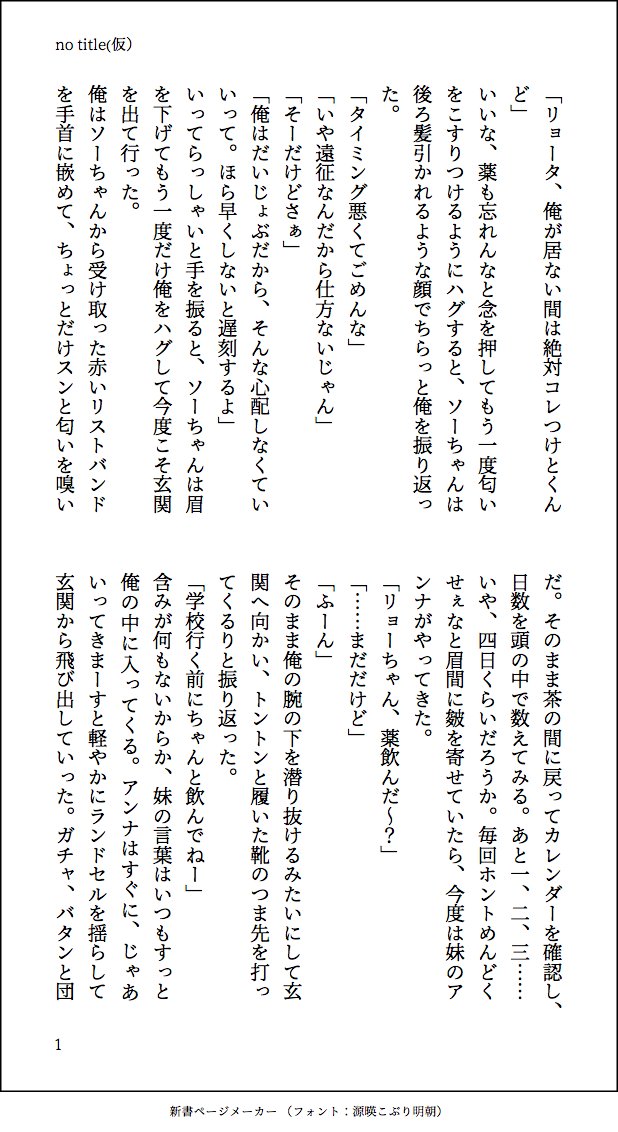 no title(仮)
「リョータ、俺が居ない間は絶対コレつけとくん
ど」
いいな、薬も忘れんなと念を押してもう一度匂い
をこすりつけるようにハグすると、ソーちゃんは
後ろ髪引かれるような顔でちらっと俺を振り返っ
た。
「タイミング悪くてごめんな」
「いや遠征なんだから仕方ないじゃん」
「そーだけどさぁ」
「俺はだいじょぶだから、そんな心配しなくてい
いって。ほら早くしないと遅刻するよ」
いってらっしゃいと手を振ると、ソーちゃんは眉
を下げてもう一度だけ俺をハグして今度こそ玄関
を出て行った。
俺はソーちゃんから受け取った赤いリストバンド
を手首に嵌めて、ちょっとだけスンと匂いを嗅い
だ。そのまま茶の間に戻ってカレンダーを確認し、
日数を頭の中で数えてみる。あと一、二、三……
いや、四日くらいだろうか。毎回ホントめんどく
せぇなと眉間に皺を寄せていたら、今度は妹のア
ンナがやってきた。
「リョーちゃん、薬飲んだ～？」
「……まだだけど」
「ふーん」
そのまま俺の腕の下を潜り抜けるみたいにして玄
関へ向かい、トントンと履いた靴のつま先を打っ
てくるりと振り返った。
「学校行く前にちゃんと飲んでねー」
含みが何もないからか、妹の言葉はいつもすっと
俺の中に入ってくる。アンナはすぐに、じゃあ
いってきまーすと軽やかにランドセルを揺らして
玄関から飛び出していった。ガチャ、バタンと団
1
新書ページメーカー（フォント：源暎こぶり明朝）